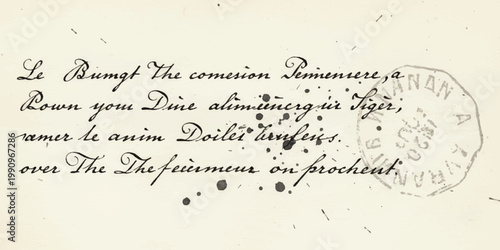 Le Bumgt The comesion Penneniere, a
Down your Dine alimeinerg ur Siger,
amer te anim Doiles
over The Thefeiermeur on prochent.
A AVRAN
Adobe Stock | #1990967286